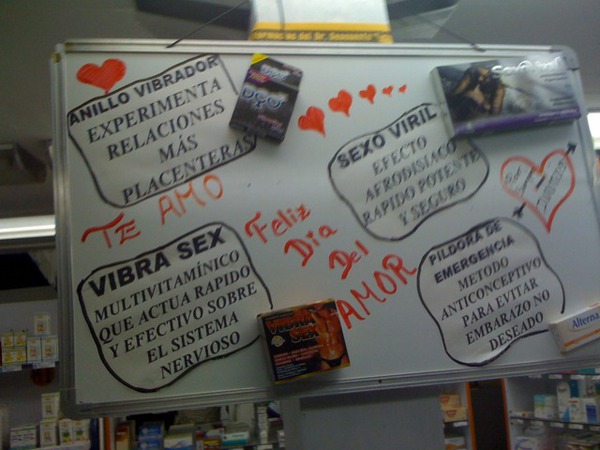 ANILLO VIBRADOR
EXPERIMENTA
RELACIONES
MÁS
PLACENTERAS
SEXO VIRIL
EFECTO
AFRODISIACO
RAPIDO POTENTE
Y SEGURO
TE AMO
Feliz
Dia
Del
AMOR
VIBRA SEX
MULTIVITAMÍNICO
QUE ACTUA RAPIDO
Y EFECTIVO SOBRE
EL SISTEMA
NERVIOSO
PILDORA DE
EMERGENCIA
METODO
ANTICONCEPTIVO
PARA EVITAR
EMBARAZO NO
DESEADO
SEX
Alterna